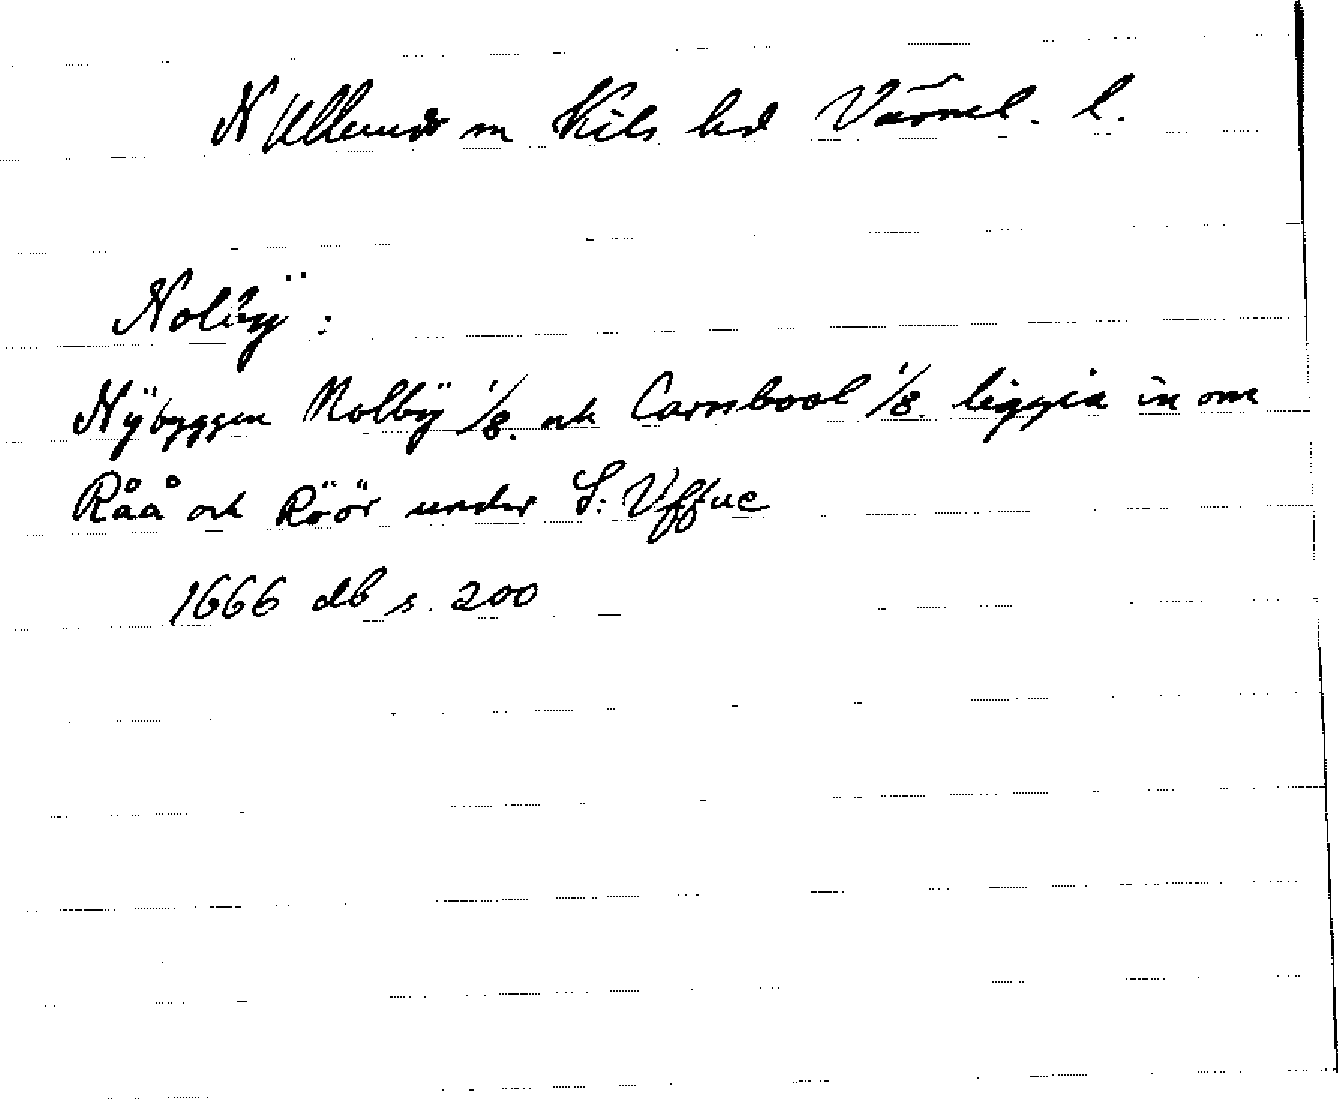 N Ullerud sn Kils hd Värml. l.
Nolbÿ :
Nÿbyggen Nolbÿ 1/8. och Carnbool 1/8. liggia in om
Råå och Röör under S: Uffue
1666 db s. 200